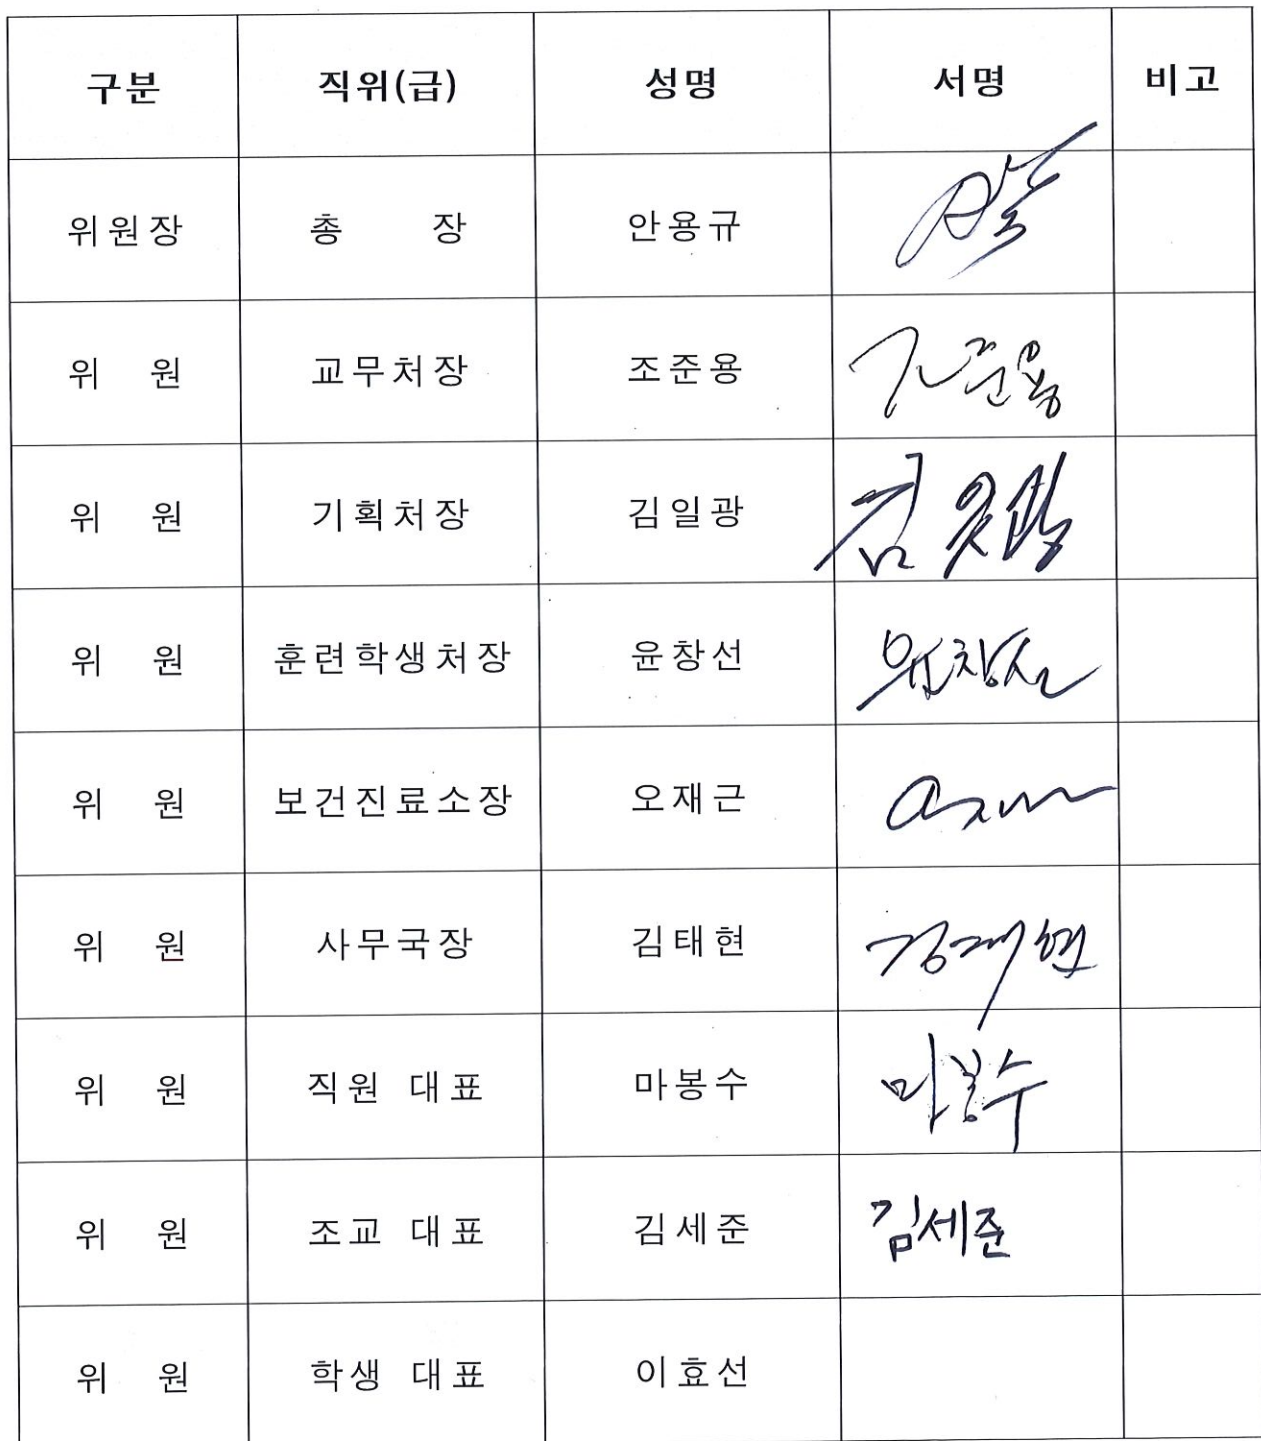 구분 직위(급) 성명 서명 비고
위원장 총 장 안용규
위 원 교무처장 조준용 조준용
위 원 기획처장 김일광 김일광
위 원 훈련학생처장 윤창선 윤창선
위 원 보건진료소장 오재근
위 원 사무국장 김태현 김태현
위 원 직원 대표 마봉수 마봉수
위 원 조교 대표 김세준 김세준
위 원 학생 대표 이효선